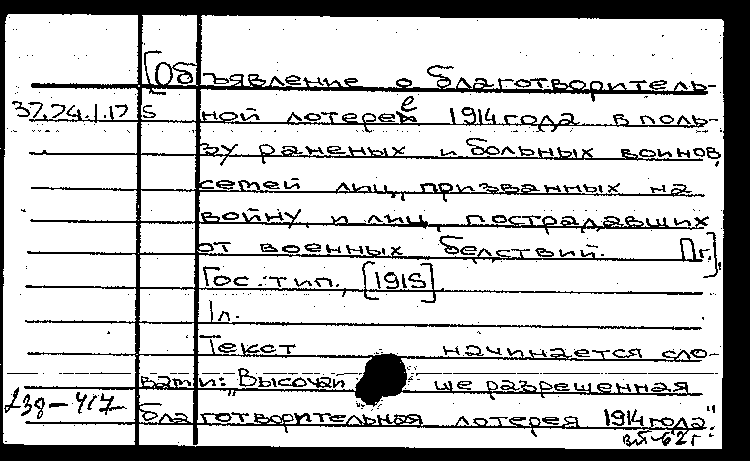 [Объявление о благотворитель-
37.24.1.17 5 ной лотерее 1914 года в поль-
зу раненых и больных воинов,
семей лиц, призванных на
войну, и лиц, пострадавших
от военных бедствий. Пг.],
Гос. тип., [1915].
1 л.
Текст начинается сло-
вами: "Высочай ше разрешенная
238-417 благотворительная лотерея 1914 года".
вл-62г